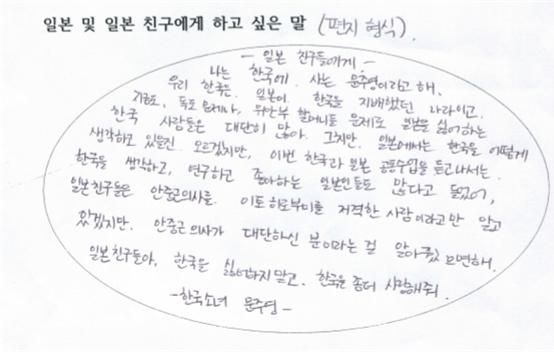 일본 및 일본 친구에게 하고 싶은 말 (편지 형식).
- 일본 친구들에게 -
나는 한국에 사는 문주영이라고 해.
우리 한국은 일본이 한국을 지배했던 나라이고.
지금도, 독도 문제나, 위안부 할머니들 문제로 일본을 싫어하는
한국 사람들은 대단히 많아. 그치만. 일본에서는 한국을 어떻게
생각하고 있을진 모르겠지만, 이번 한국과 일본 공동수업을 듣고나서는.
한국을 생각하고, 연구하고 좋아하는 일본인들도 많다고 들었어,
일본친구들은 안중근의사를. 이토 히로부미를 저격한 사람이라고만 알고
있겠지만. 안중근 의사가 대단하신 분이라는 걸 알아줬으면해.
일본친구들아, 한국을 싫어하지 말고. 한국을 좀더 사랑해줘.
-한국소녀 문주영-